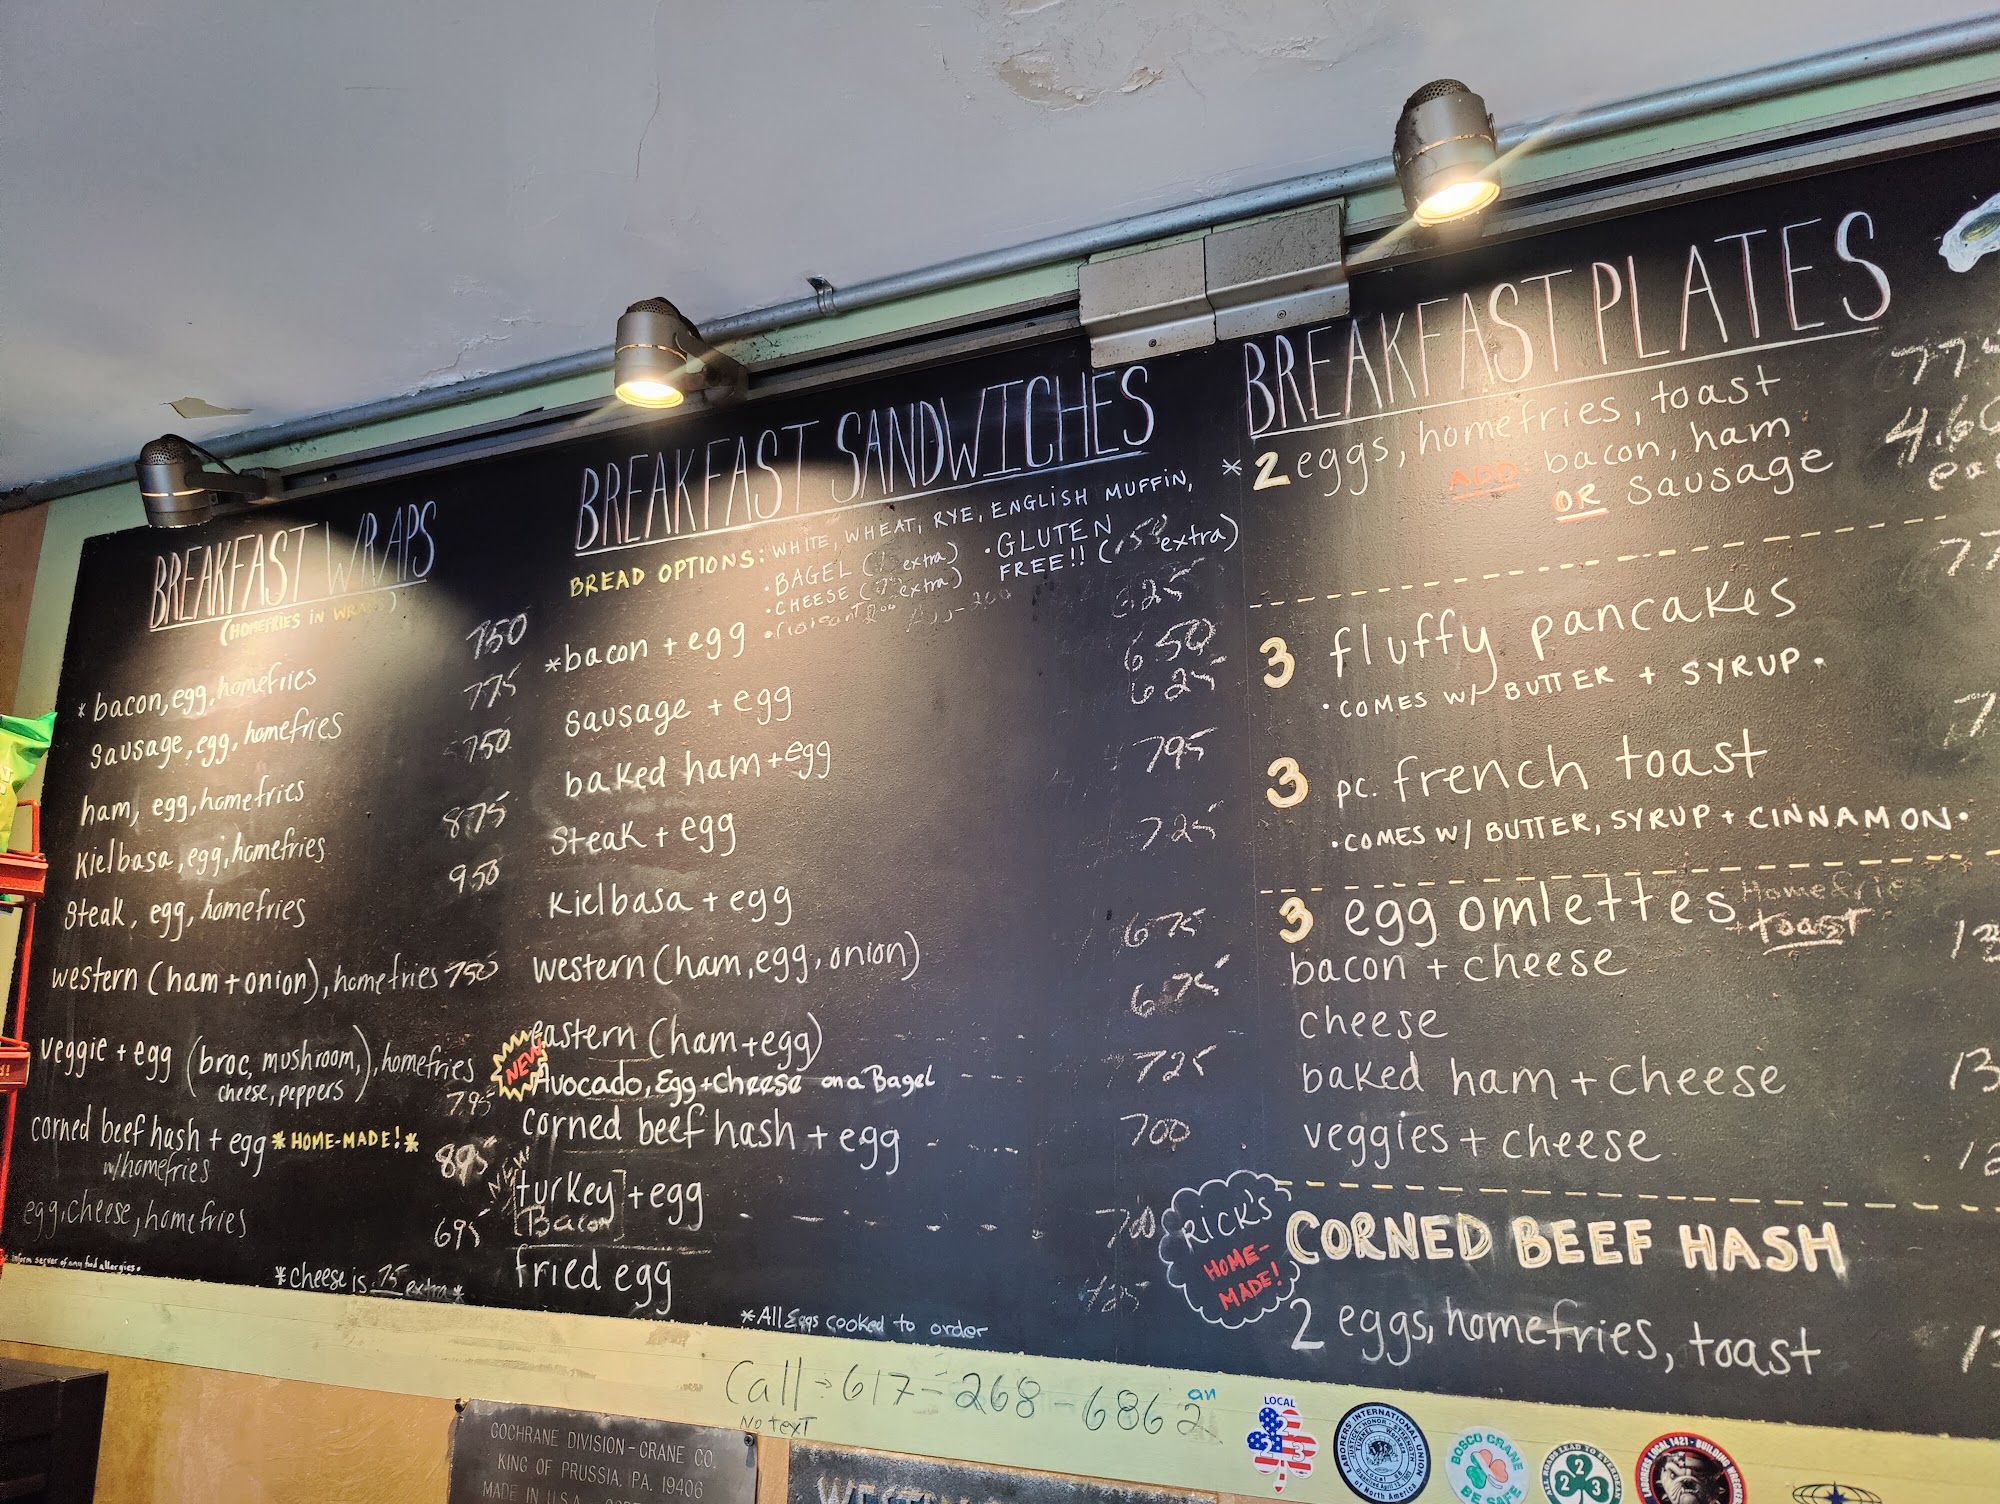 BREAKFAST WRAPS
(HOMEFRIES IN WRAPS)
*bacon, egg, homefries 750
sausage, egg, homefries 775
ham, egg, homefries 750
Kielbasa, egg, homefries 875
Steak, egg, homefries 950
western (ham + onion), homefries 750
veggie + egg (broc, mushroom,), homefries
cheese, peppers 795
corned beef hash + egg *HOME-MADE!*
w/homefries 895
egg, cheese, homefries 695
inform server of any food allergies.
*cheese is .75 extra*
BREAKFAST SANDWICHES
BREAD OPTIONS: WHITE, WHEAT, RYE, ENGLISH MUFFIN,
• BAGEL (.75 extra) • GLUTEN
• CHEESE (.75 extra) FREE!! (1.50 extra)
• Croissant 200
*bacon + egg 625
sausage + egg 650
baked ham + egg 625
Steak + egg 795
Kielbasa + egg 725
western (ham, egg, onion) 675
eastern (ham + egg) 675
NEW Avocado, Egg + Cheese on a Bagel 725
corned beef hash + egg 700
NEW turkey + egg 700
[Bacon]
fried egg 425
*All Eggs cooked to order
BREAKFAST PLATES
* 2 eggs, homefries, toast
ADD bacon, ham
OR sausage
3 fluffy pancakes
• COMES W/ BUTTER + SYRUP.
3 pc. french toast
• COMES W/ BUTTER, SYRUP + CINNAMON •
3 egg omlettes Homefries
+ toast
bacon + cheese
cheese
baked ham + cheese
veggies + cheese
RICK'S
HOME-
MADE!
CORNED BEEF HASH
2 eggs, homefries, toast
Call → 617-268-6862
No text
COCHRANE DIVISION - CRANE CO.
KING OF PRUSSIA, PA. 19406
MADE IN U.S.A.
LOCAL
223
LABORERS' INTERNATIONAL UNION
of North America
JUSTICE HONOR STRENGTH
BOSCO CRANE
BE SAFE
223
LABORERS LOCAL 1421 - BUILDING WRECKERS